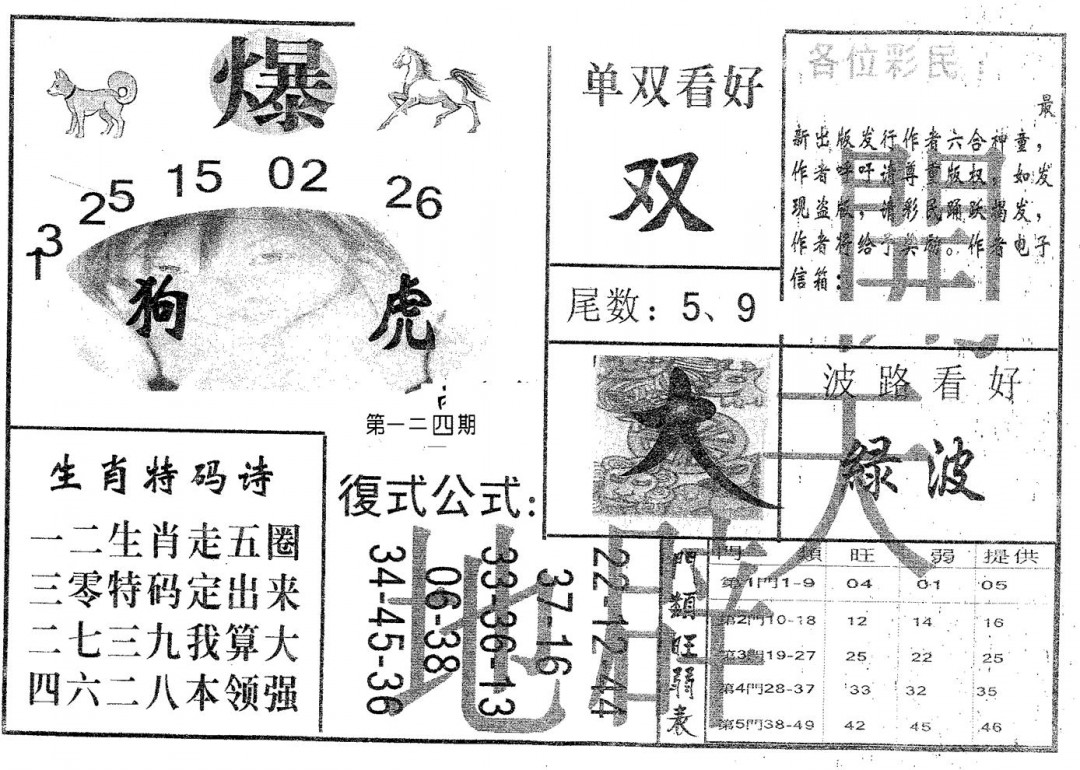 爆
13
25
15
02
26
狗
虎
第一二四期
单双看好
双
尾数：5、9
大
波路看好
綠波
各位彩民：
最
新出版发行作者六合神童，
作者呼吁请尊重版权，如发
现盗版，请彩民踊跃揭发，
作者将给予奖励。作者电子
信箱：
開
天
地
生肖特码诗
一二生肖走五圈
三零特码定出来
二七三九我算大
四六二八本领强
復式公式：
34-45-36
06-38
33-36-13
37-16
22-12-44
門類旺弱表
門 類 旺 弱 提供
第1門1-9 04 01 05
第2門10-18 12 14 16
第3門19-27 25 22 25
第4門28-37 33 32 35
第5門38-49 42 45 46